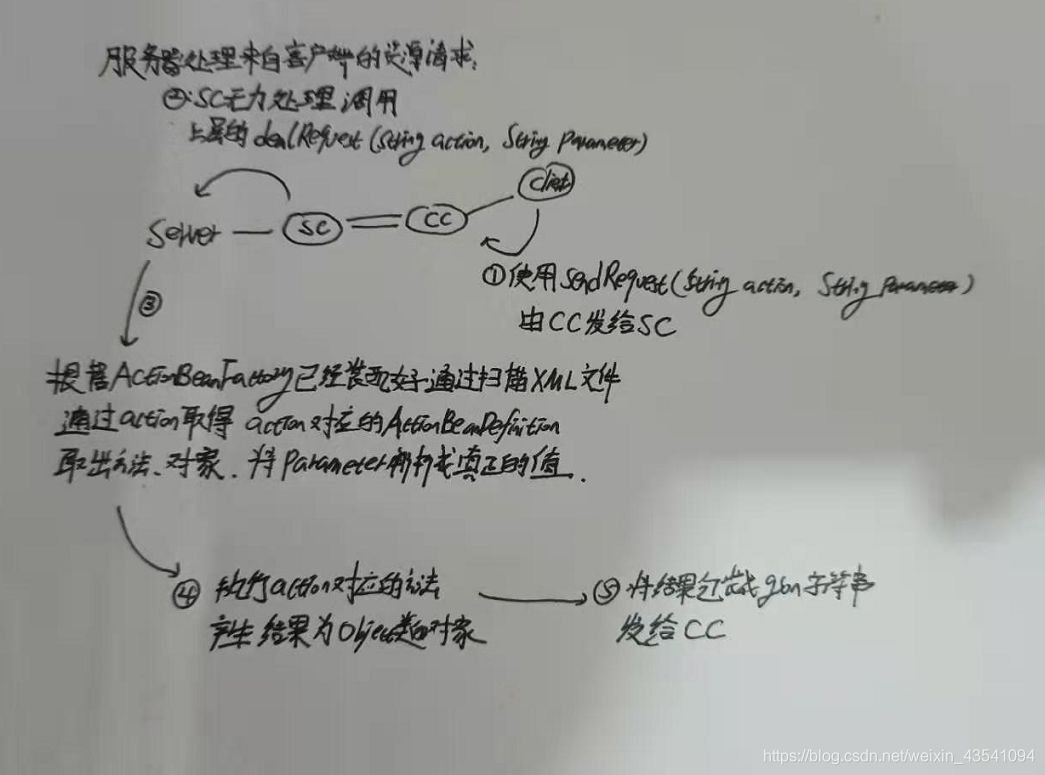 服务器处理来自客户端的资源请求:
②:SC无力处理 调用
上层的 dealRequest (String action, String Parameter)
Client
Server SC CC
①使用 sendRequest (String action, String Parameter)
由CC发给SC
③
根据ActionBeanFactory已经装配好 通过扫描XML文件
通过action取得 action对应的ActionBeanDefinition
取出方法、对象. 将Parameter解析成真正的值.
④ 执行action对应的方法
产生结果为Object类的对象
⑤ 将结果包装成gson字符串
发给CC
https://blog.csdn.net/weixin_43541094